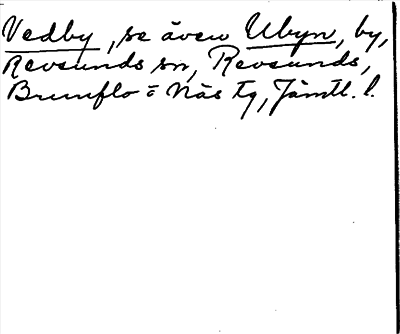 Vedby, se även Ubyn, by,
Revsunds sn, Revsunds,
Brunflo o Näs tg, Jämtl. l.